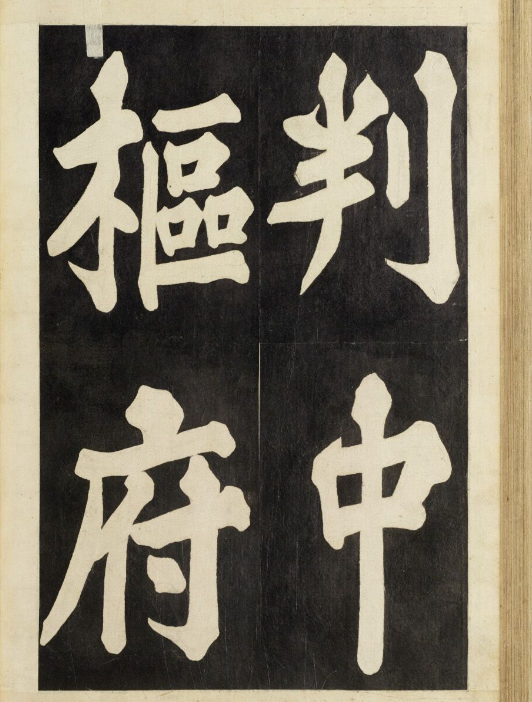 判中
樞府